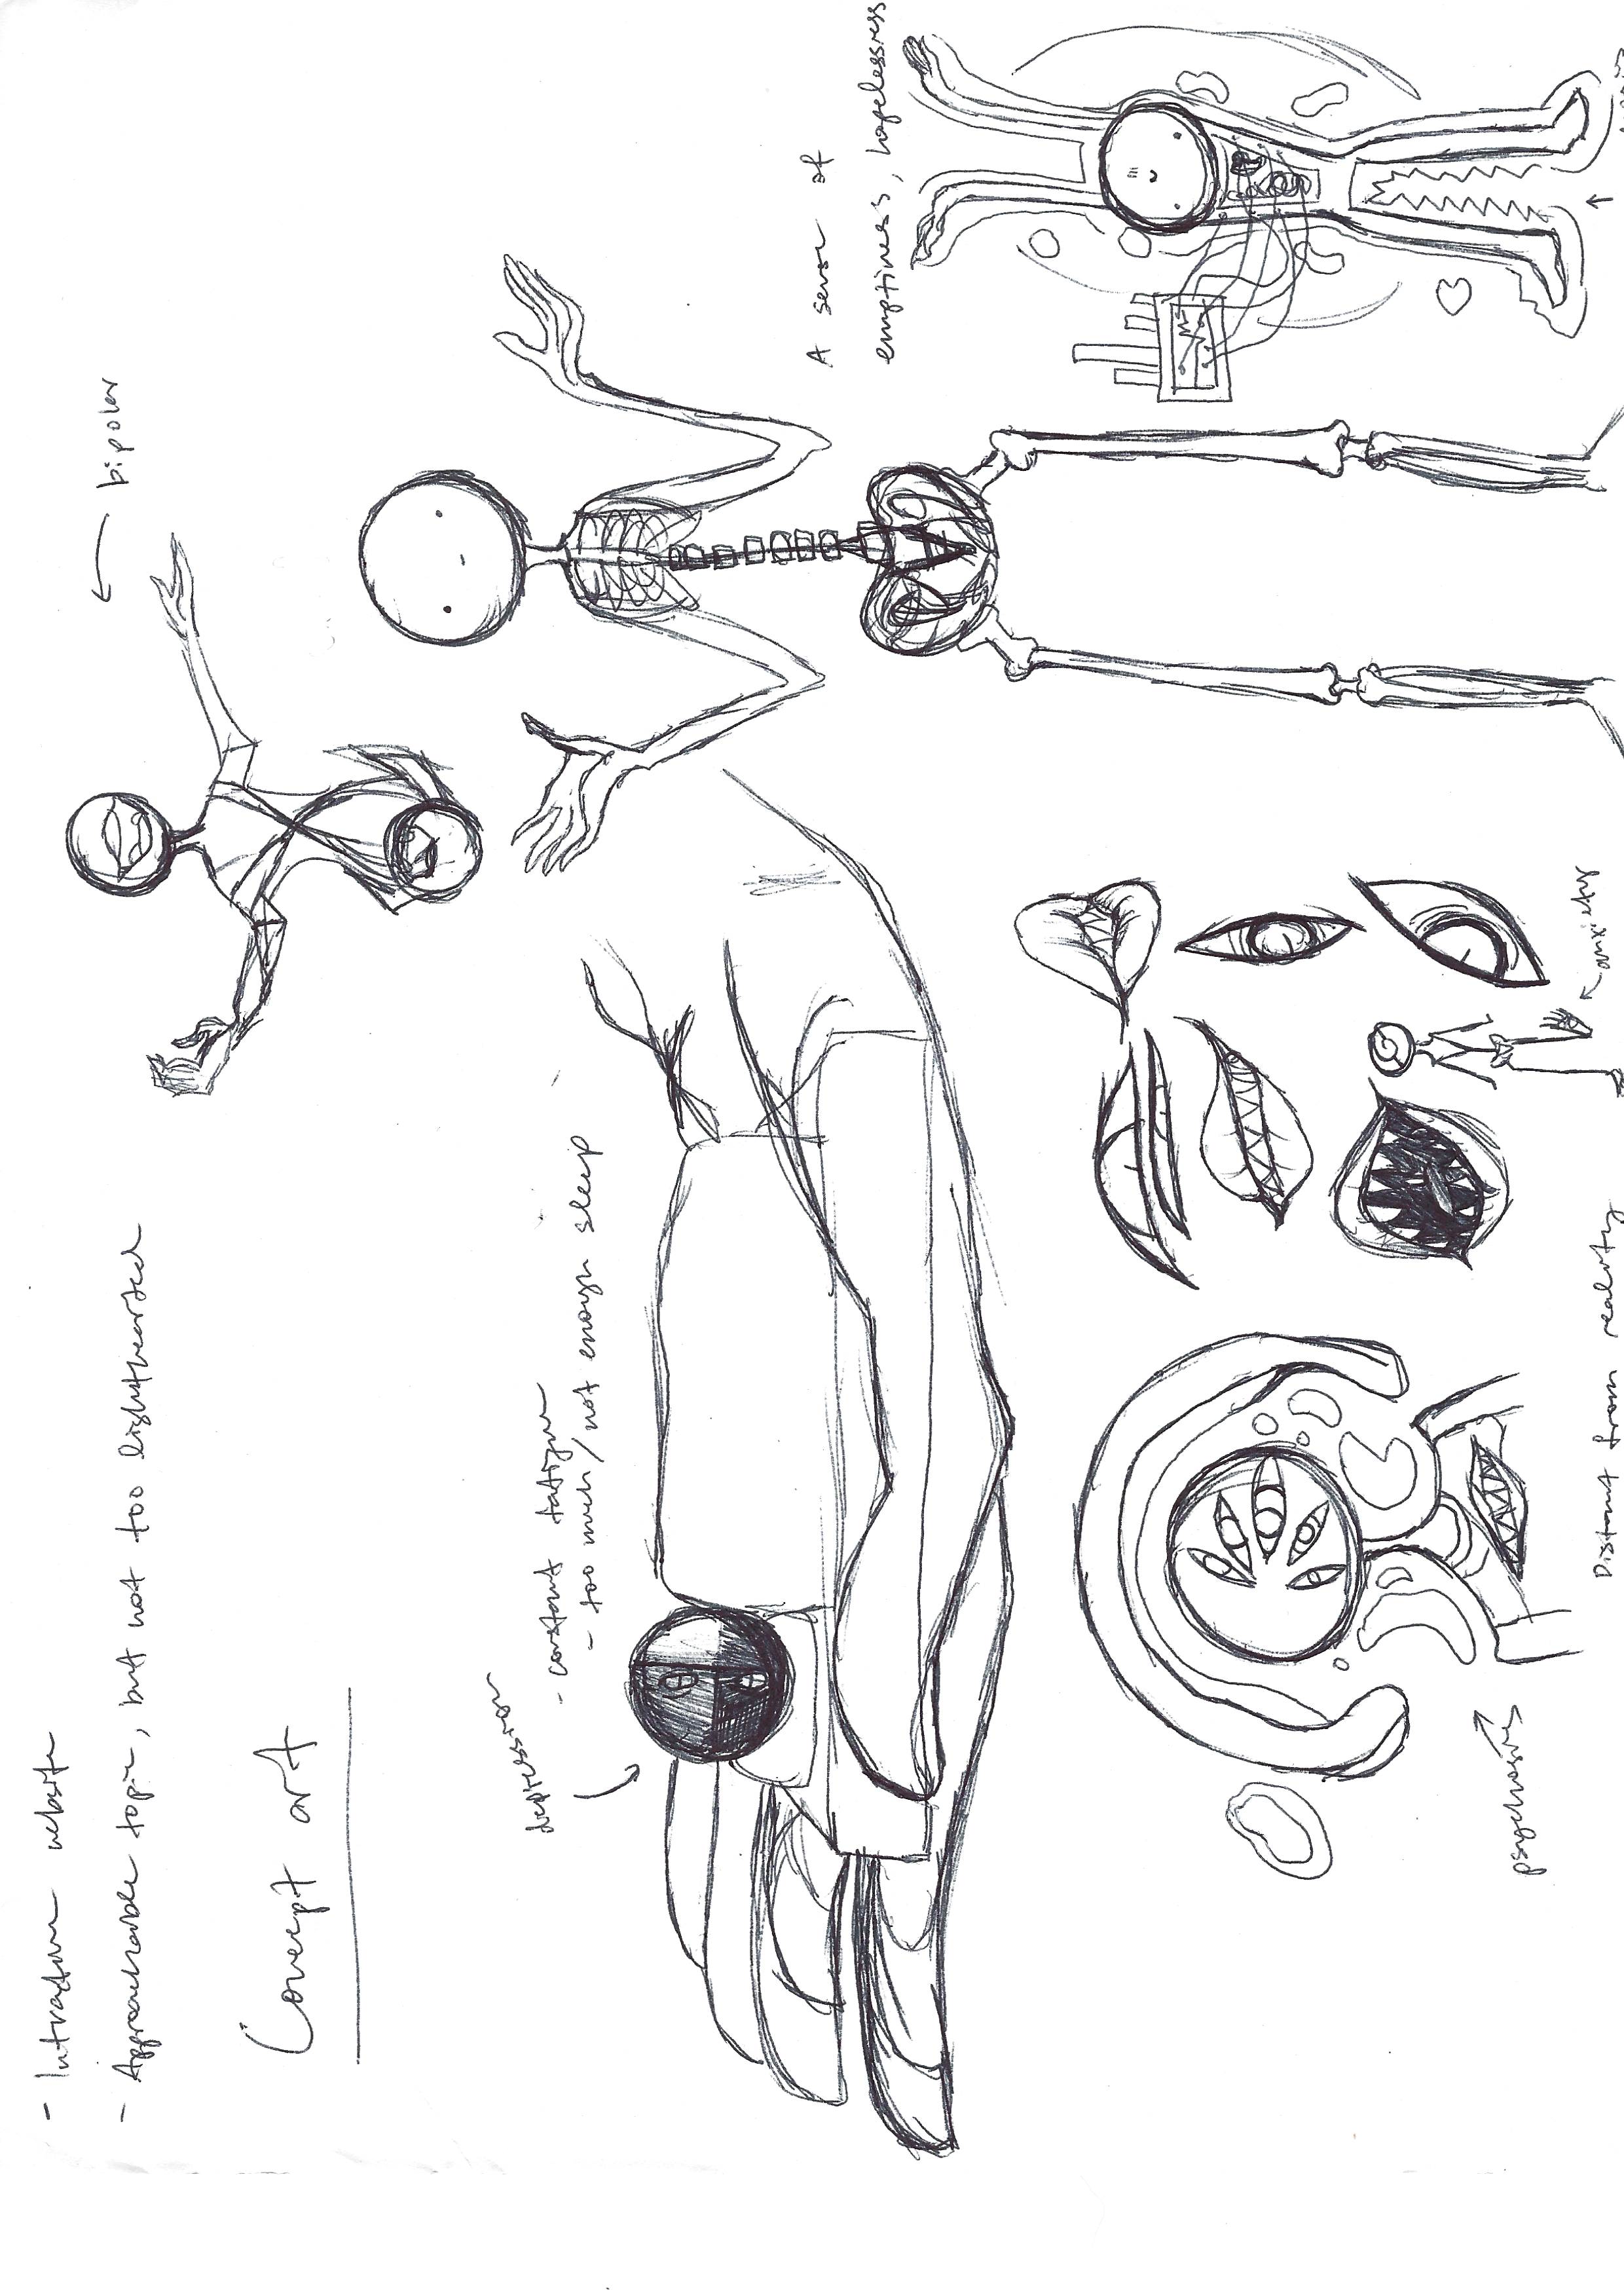 - Intradum website
- Approachable topic, but not too lighthearted
Concept art
bipolar
depression
- constant fatigue
- too much/not enough sleep
A sense of
emptiness, hopelessness
anxiety
psychosis
Distant from reality